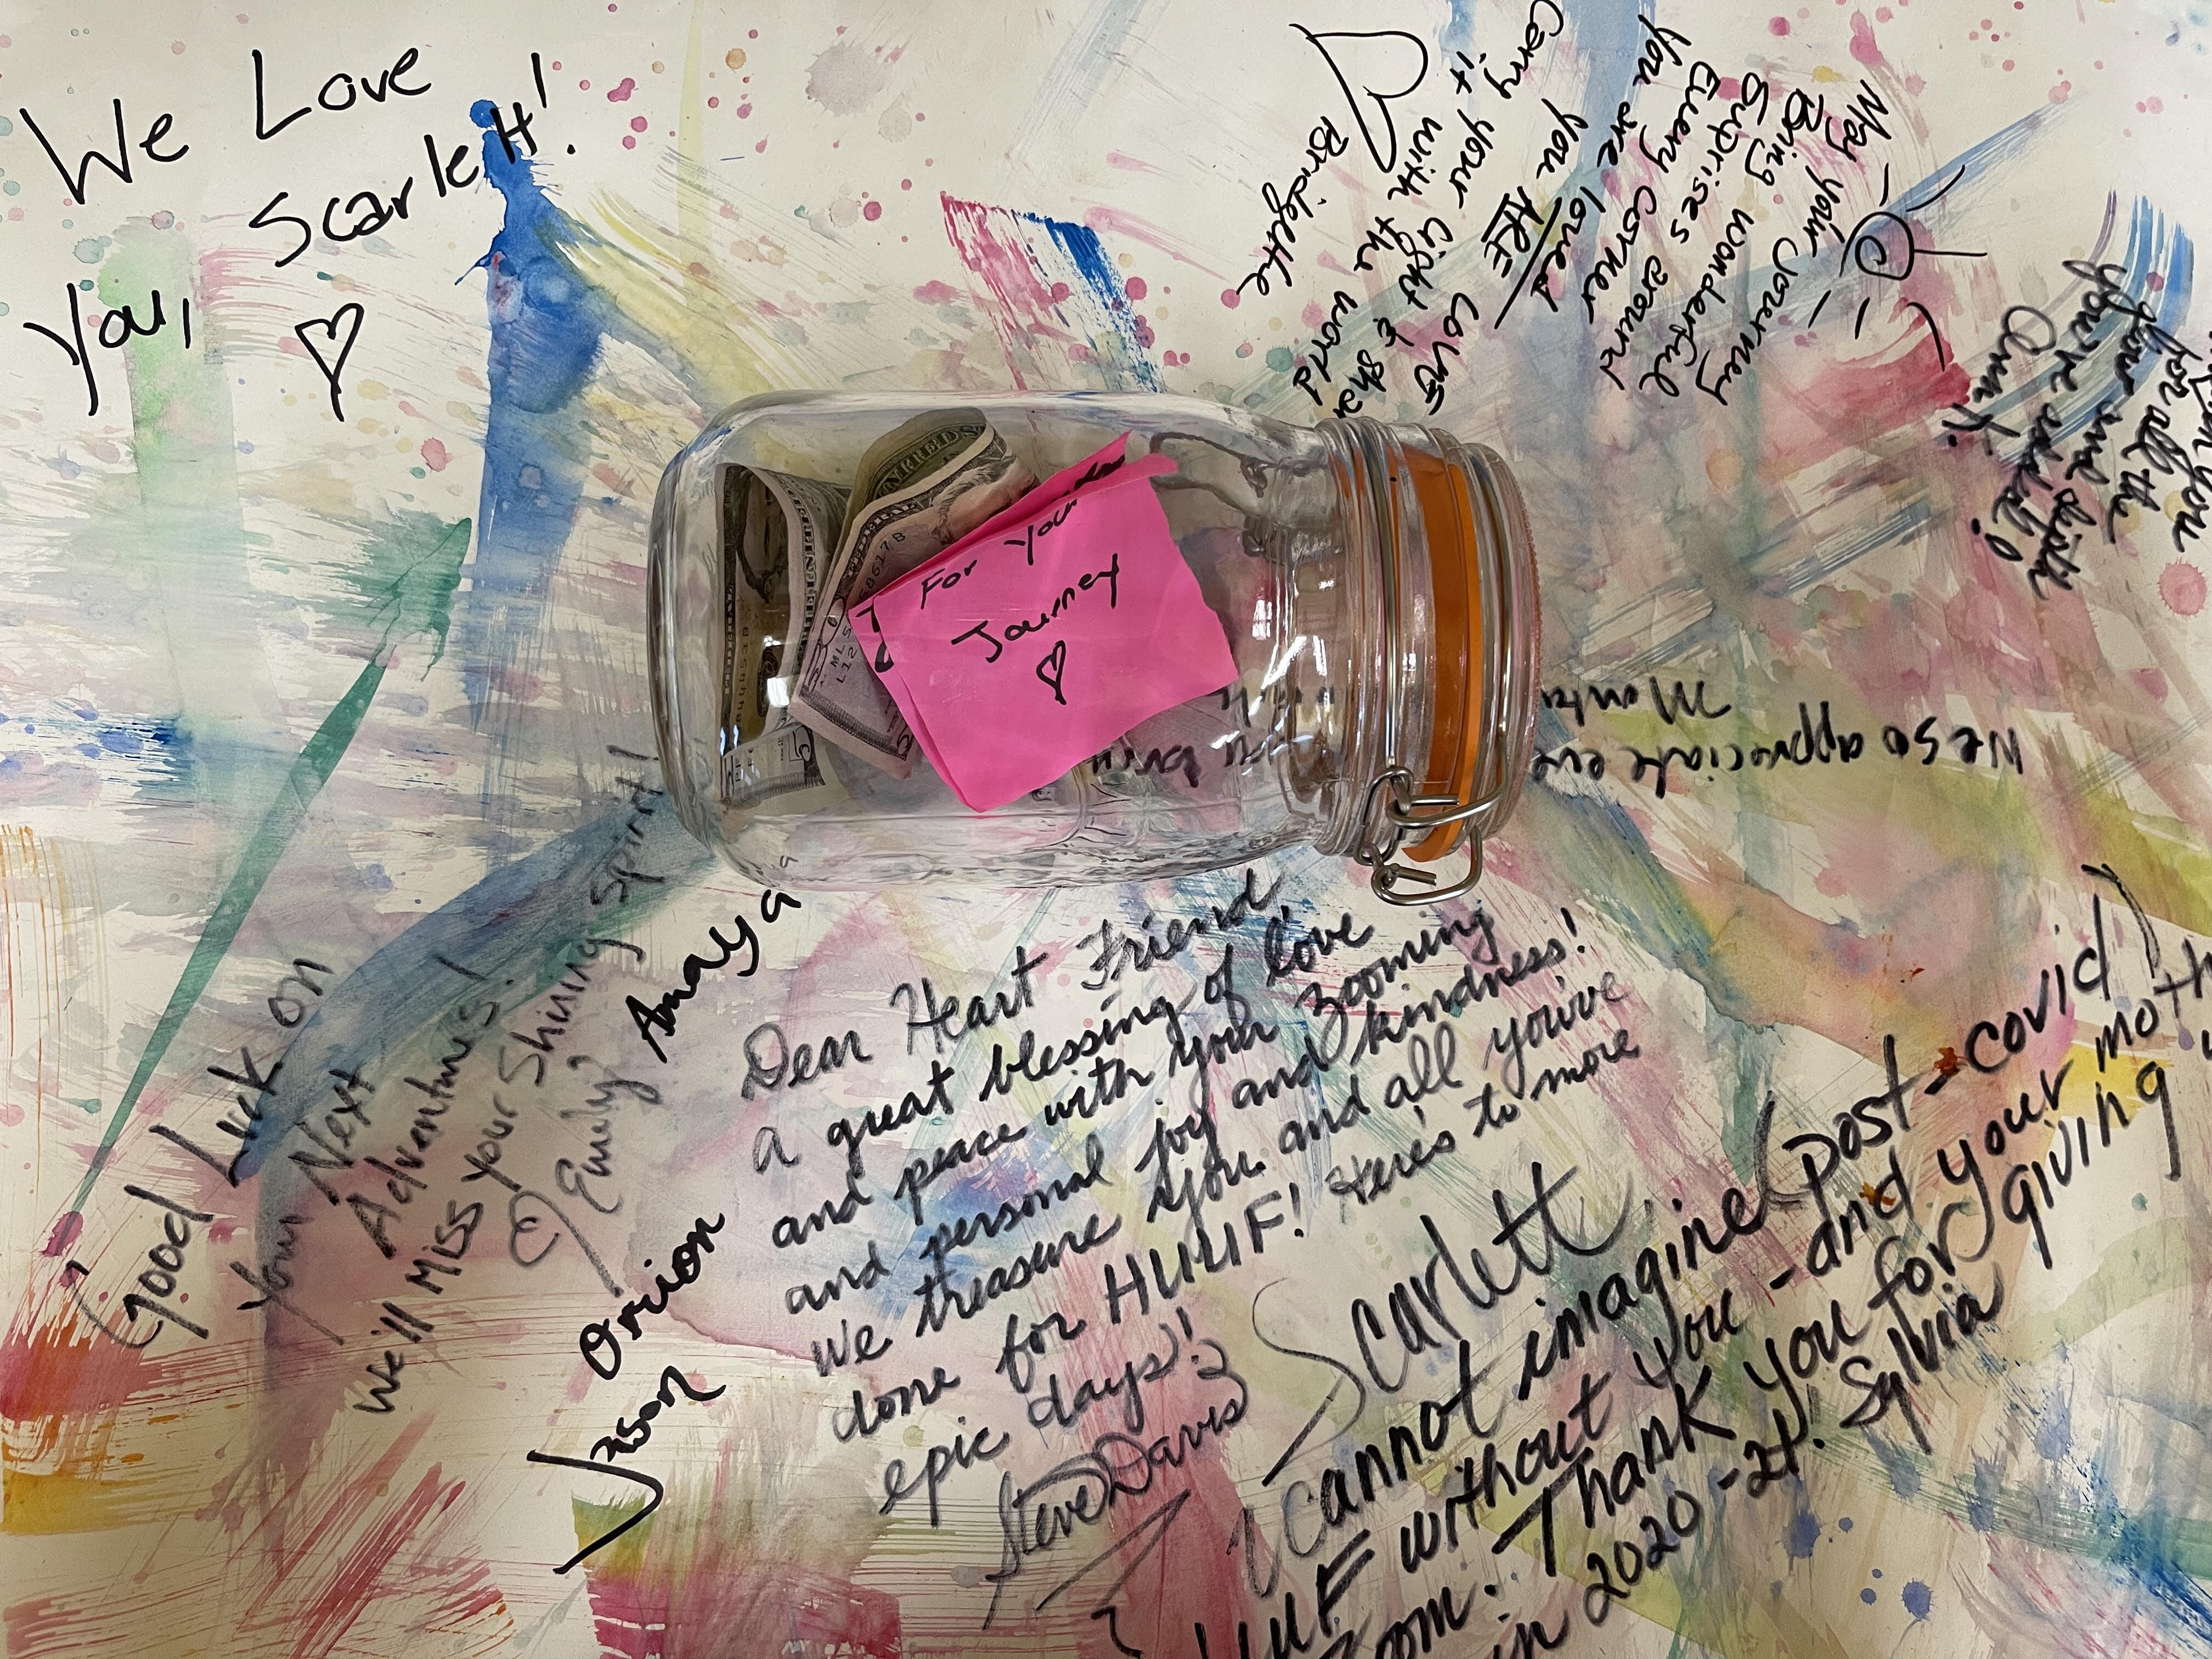 We Love
You, Scarlett!
May your journey
Bring wonderful
Suprises around
Every corner
You are loved
you ARE Love
Carry it your light & shar
it with the world
Bridgette
you
for all the
your and
you've added!
Amy.
For Your
Journey
We so appreciate eve
you bring
Good Luck on
Your Next
Adventures!
We'll Miss your Shining Spirit!
Emily
Amaya
Orion
Jason
Dear Heart Friend
A great blessing of love
and peace with your zooming
and personal joy and kindness!
We treasure you and all you've
done for HUUF! Here's to more
epic days!
Steve Davis
Scarlett
I cannot imagine post-covid
HUUF without you - and your moth
Zoom. Thank you for giving
in 2020-21! Sylvia